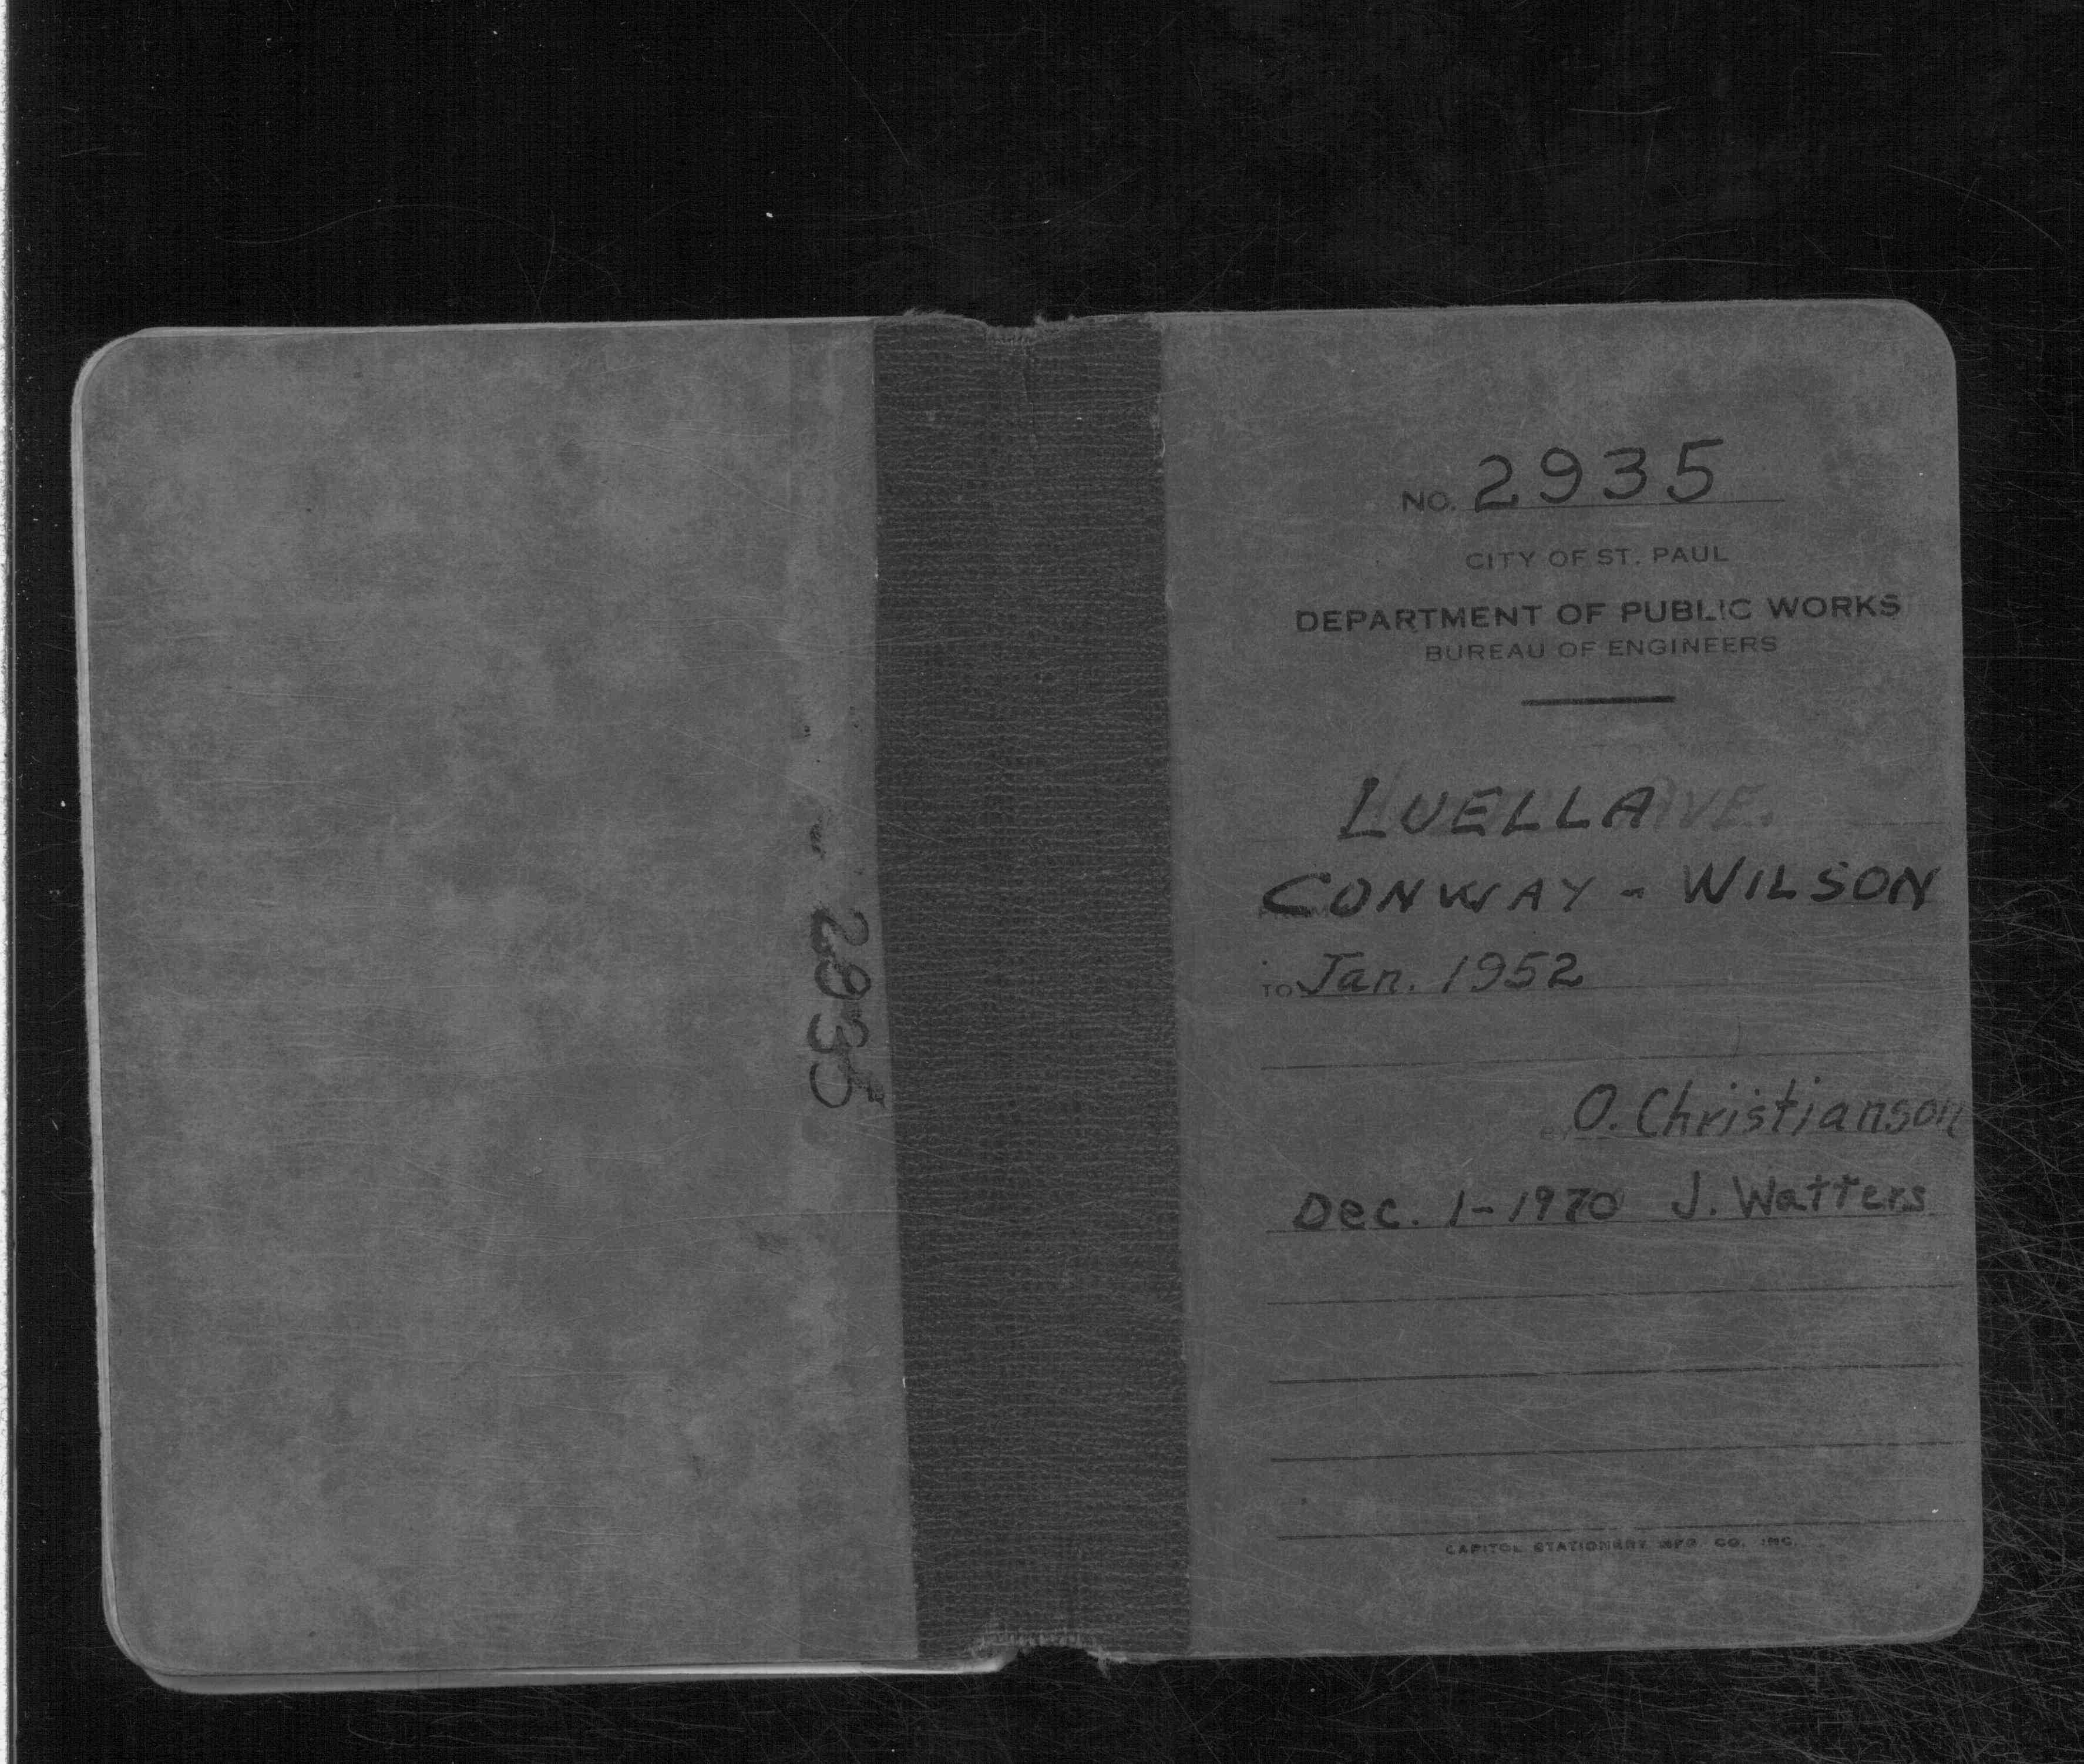 2935
NO. 2935
CITY OF ST. PAUL
DEPARTMENT OF PUBLIC WORKS
BUREAU OF ENGINEERS
LUELLA AVE.
CONWAY - WILSON
TO Jan. 1952
O. Christianson
Dec. 1-1970 J. Watters
CAPITOL STATIONERY MFG CO. INC.